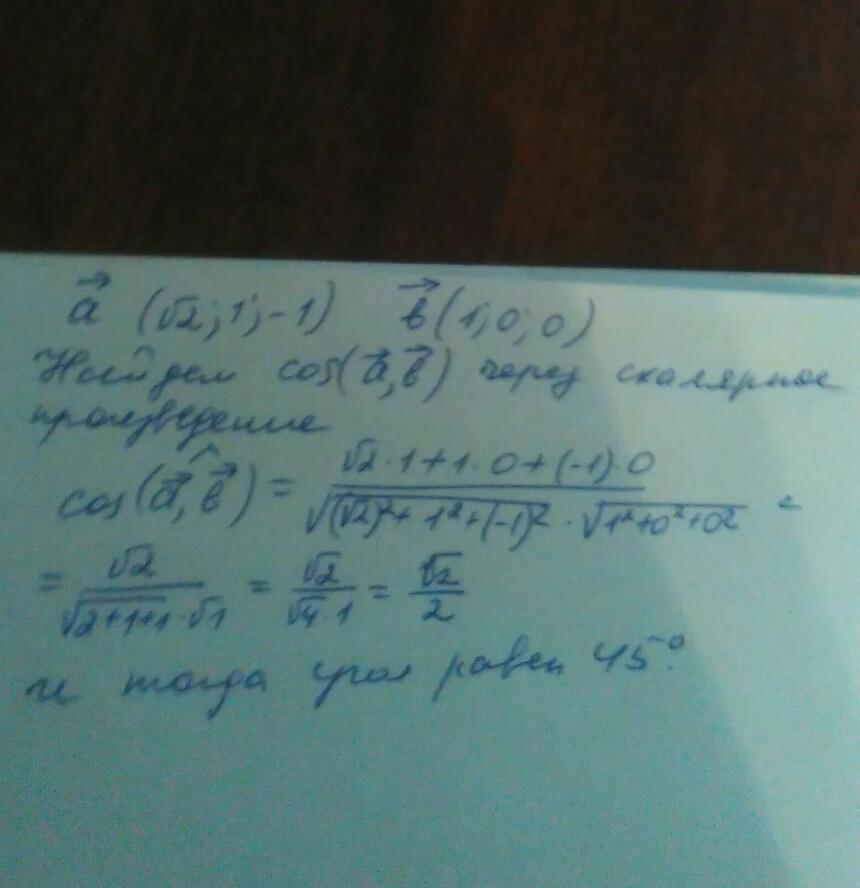 a⃗ (√2; 1; -1) b⃗ (1; 0; 0)
Найдем cos(a⃗, b⃗) через скалярное
произведение
cos(a⃗,^b⃗) = (√2·1+1·0+(-1)·0)/(√((√2)²+1²+(-1)²)·√(1²+0²+0²)) =
= √2/(√(2+1+1)·√1) = √2/(√4·1) = √2/2
и тогда угол равен 45°.